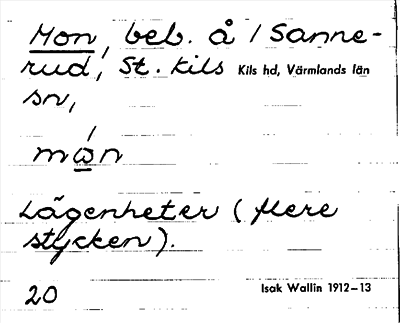 Mon, beb. å / Sanne-
rud, St. Kils Kils hd, Värmlands län
sn,
mo̲n
Lägenheter (flere
stycken).
20 Isak Wallin 1912–13